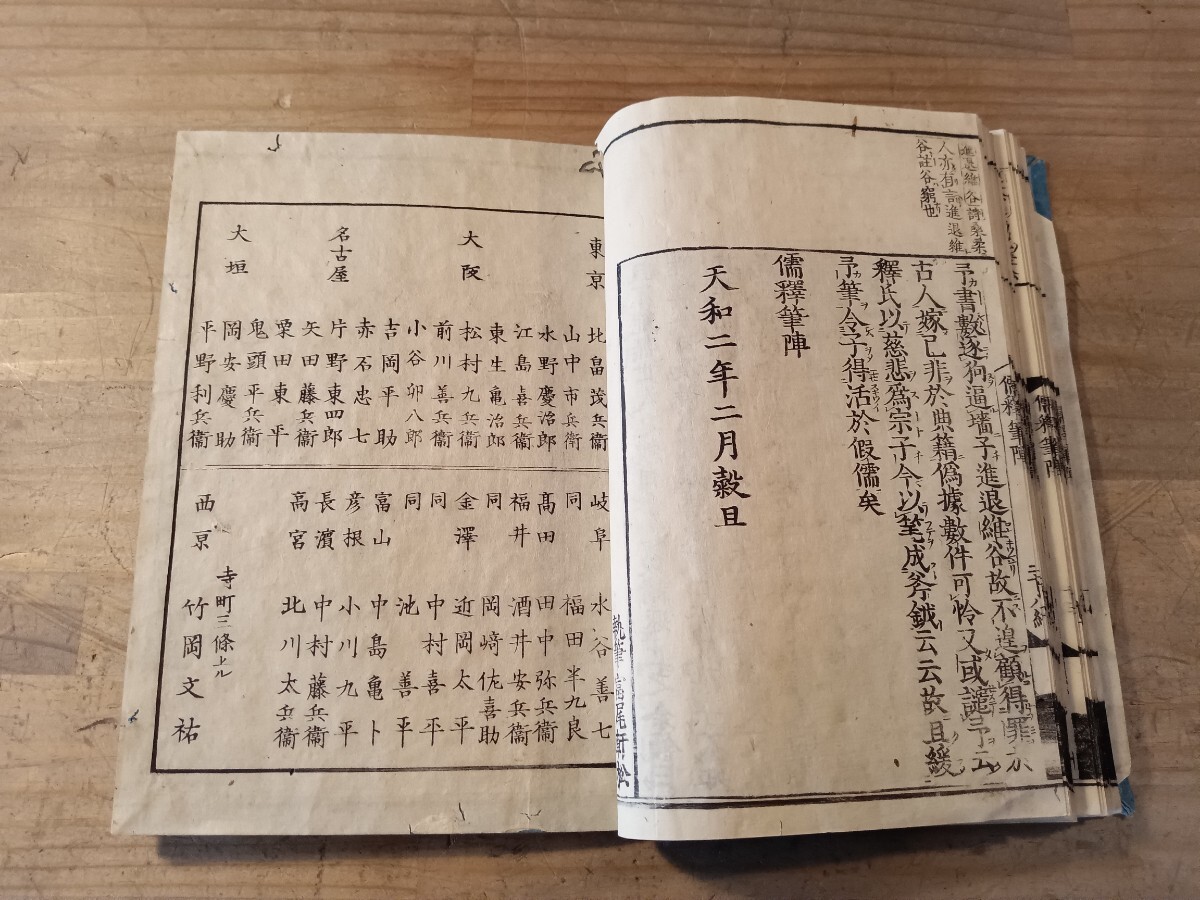 進退維谷詩桑柔
人亦有言進退維
谷註谷窮也
予書數逐狗逼墻子進退維谷故不遑顧得罪於
古人嫁己非於典籍偽據數件可怜又或譴予云
釋氏以慈悲為宗子今以筆成斧鉞云云故且緩
予筆令子得活於假儒矣
儒釋筆陣
天和二年二月穀旦
儒釋筆陣
東京
北畠茂兵衞
山中市兵衞
水野慶治郎
江島喜兵衞
東生亀治郎
大阪
松村九兵衞
前川善兵衞
小谷卯八郎
吉岡平助
赤石忠七
名古屋
片野東四郎
矢田藤兵衞
栗田東平
鬼頭平兵衞
大垣
岡安慶助
平野利兵衞
岐阜 水谷善七
同 福田半九良
髙田 田中弥兵衞
福井 酒井安兵衞
同 岡﨑佐喜助
金澤 近岡太平
同 中村喜平
同 池善平
富山 中島亀卜
彦根 小川九平
長濱 中村藤兵衞
高宮 北川太兵衞
西京 寺町三條上ル 竹岡文祐